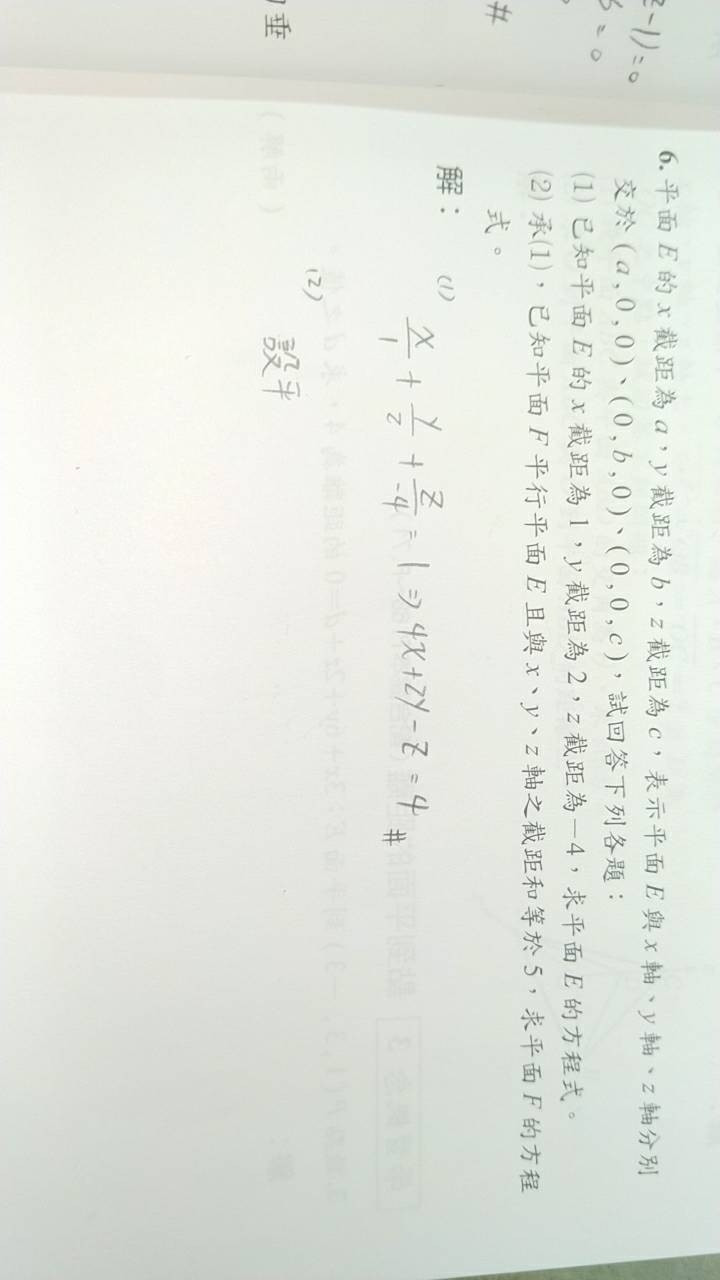 z-1)=0
=0
#
垂
6. 平面 E 的 x 截距為 a，y 截距為 b，z 截距為 c，表示平面 E 與 x 軸、y 軸、z 軸分別
交於 (a,0,0)、(0,b,0)、(0,0,c)，試回答下列各題：
(1) 已知平面 E 的 x 截距為 1，y 截距為 2，z 截距為 −4，求平面 E 的方程式。
(2) 承(1)，已知平面 F 平行平面 E 且與 x、y、z 軸之截距和等於 5，求平面 F 的方程
式。
解：
(1)
x/1 + y/2 + z/-4 = 1 ⇒ 4x+2y-z=4 #
(2)
設平